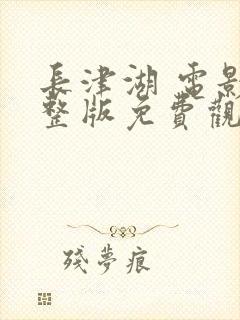 長津湖 電影
整版免費觀
殘夢痕